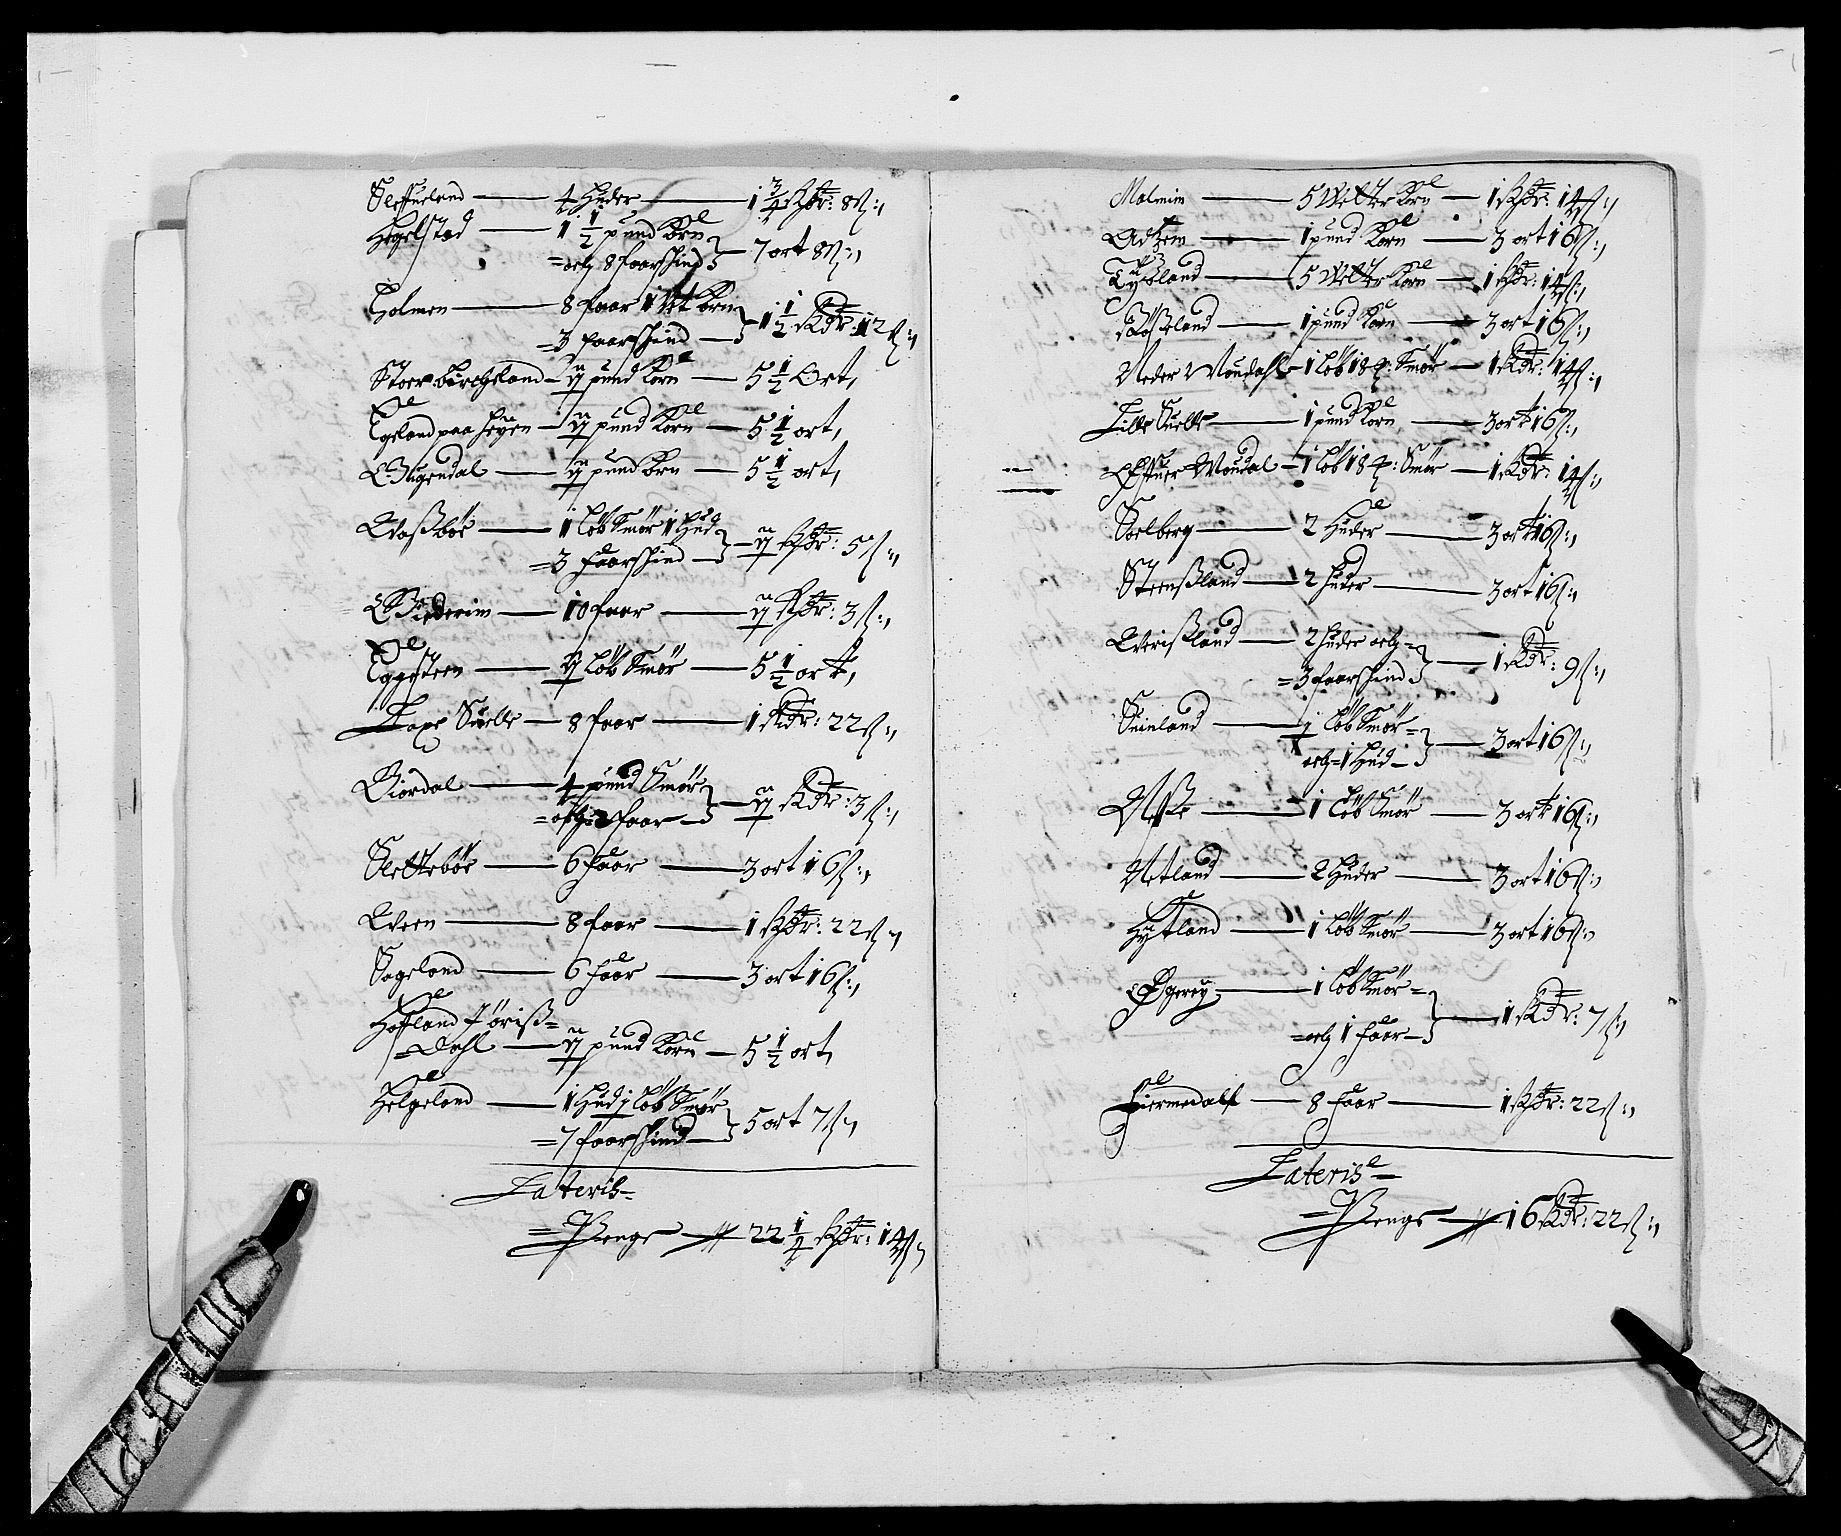 Slettueland — 4 Huder — 1 3/4 Rdr: 8 s:
Hegelstad — 1 1/2 pund Korn
= och 8 faarskind } — 7 ort 8 s:
Holmen — 8 faar 1 Vet Korn
= 3 faarskind — } 1 1/2 Rdr: 12 s:
Stoer birckeland — ij pund Korn — 5 1/2 Ort,
Egeland paa heyen — ij pund Korn — 5 1/2 ort,
Mugendal — ij pund Korn — 5 1/2 ort,
Waßbøe — 1 løb Smør 1 Hud
= 3 faarskind — } — ij Rdr: 5 s:
Wiederim — 10 faar — ij Rdr: 3 s:
Eggesteen — ij løb Smør — 5 1/2 ort,
Laxe Suelle — 8 faar — 1 Rdr: 22 s:
Giordal — 4 pund Smør
= och 2 faar — } — ij Rdr: 3 s:
Slettebøe — 6 faar — 3 ort 16 s:
Ween — 8 faar — 1 Rdr: 22 s:
Sageland — 6 faar — 3 ort 16 s:
Hofland Jøriß=
= Dahl — ij pund Korn — 5 1/2 ort,
Helgeland — 1 Hud j løb Smør
= 7 faarskind — } 5 ort 7 s:
Lateris =
= Penge — 22 1/4 Rdr: 14 s:
Malmim — 5 Wetter Korn — 1 Rdr: 14 s:
Adzem — 1 pund Korn — 3 ort 16 s:
Tydzland — 5 Wetter Korn — 1 Rdr: 14 s:
Røßeland — 1 pund Korn — 3 ort 16 s:
Neder Moudahl — 1 løb 18 p: Smør — 1 Rdr: 14 s:
Lille Suelle — 1 pund Korn — 3 ort 16 s:
Øffuer Moudal — 1 løb 18 p: Smør — 1 Rdr: 14 s:
Solberg — 2 Huder — 3 ort 16 s:
Steenßland — 2 huder — 3 ort 16 s:
Werißland — 2 huder och =
= 3 faarskind } — 1 Rdr: 9 s:
Suinland — j løb Smør =
och = 1 Hud — } — 3 ort 16 s:
Neße — 1 løb Smør — 3 ort 16 s:
Netland — 2 Huder — 3 ort 16 s:
Hytland — 1 løb Smør — 3 ort 16 s:
Øgerey — 1 løb Smør =
= och 1 faar — } — 1 Rdr: 7 s:
Fiermedahl — 8 faar — 1 Rdr: 22 s:
Lateris =
= Penge — 16 Rdr: 22 s: